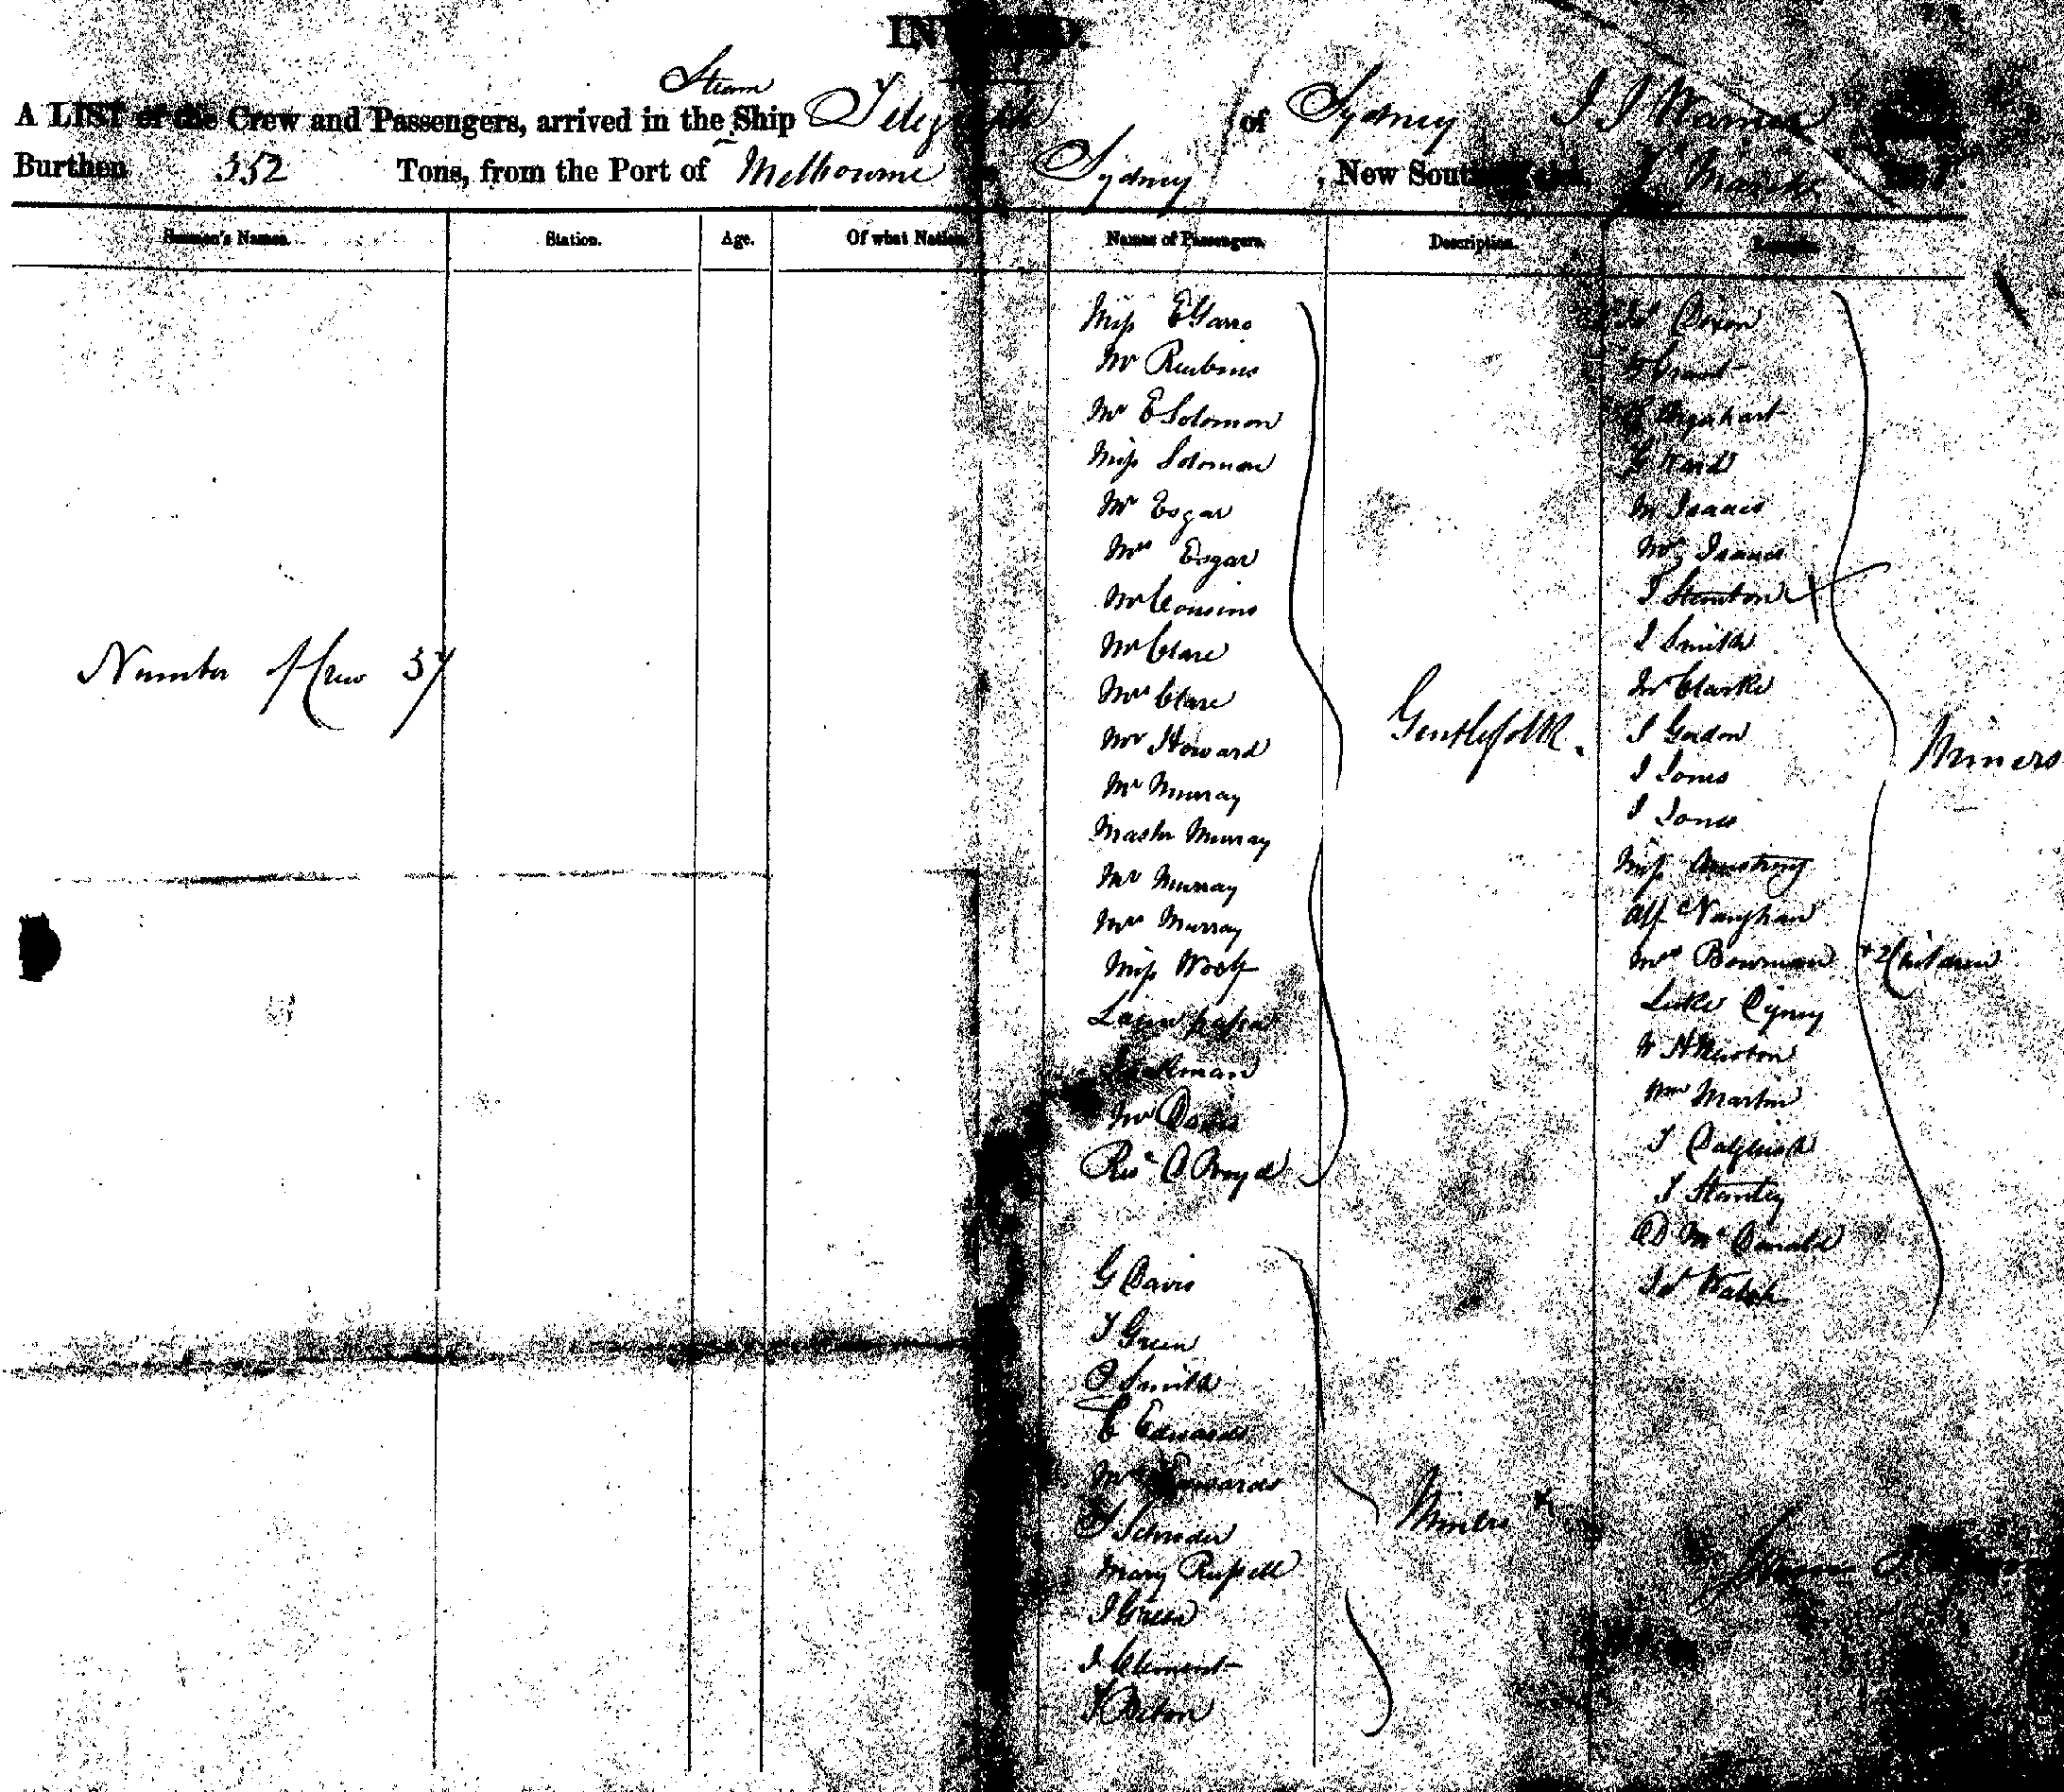 INWARD.
A LIST of the Crew and Passengers, arrived in the Steam Ship Telegraph of Sydney
Burthen 352 Tons, from the Port of Melbourne to Sydney, New South Wales,
Seamen's Names. Station. Age. Of what Nation. Names of Passengers. Description. Remarks.
Number of Crew 37
Miss
Mr Reubins
Mr E Solomon
Miss Solomon
Mr Esgar
Mrs Esgar
Mr Cousins
Mr Clare
Mrs Clare
Mr Howard
Mr Murray
Master Murray
Mr Murray
Mrs Murray
Miss Woolf
Mr Davis
Revd Boyd
Gentlefolk.
G Davis
T Green
Smith
C Edwards
Mrs Edwards
Schroder
Mary Russell
J Green
J Clement
Miners
Dixon
Grant
Urquhart
G Ward
M Isaacs
Mrs Isaacs
J Stanton
J Smith
Mr Clarke
J Gordon
J Jones
J Jones
Miss Armstrong
Alf Vaughan
Mrs Bowman + 2 Children
Luke
W H Newton
Wm Martin
T Dalgleish
J Stanley
D McDonald
Jas Walsh
Miners